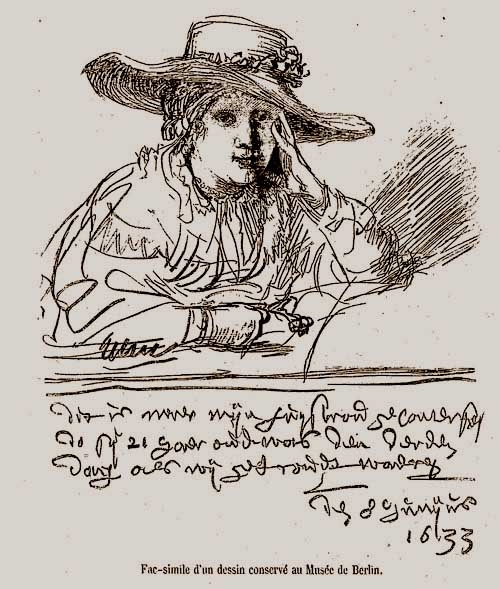 dit is naer mijn huijsvrou geconterfeyt
do sij 21 jaer oud was den derden
dach als wij getroudt waeren
den 8 junijus
1633
Fac-simile d'un dessin conservé au Musée de Berlin.